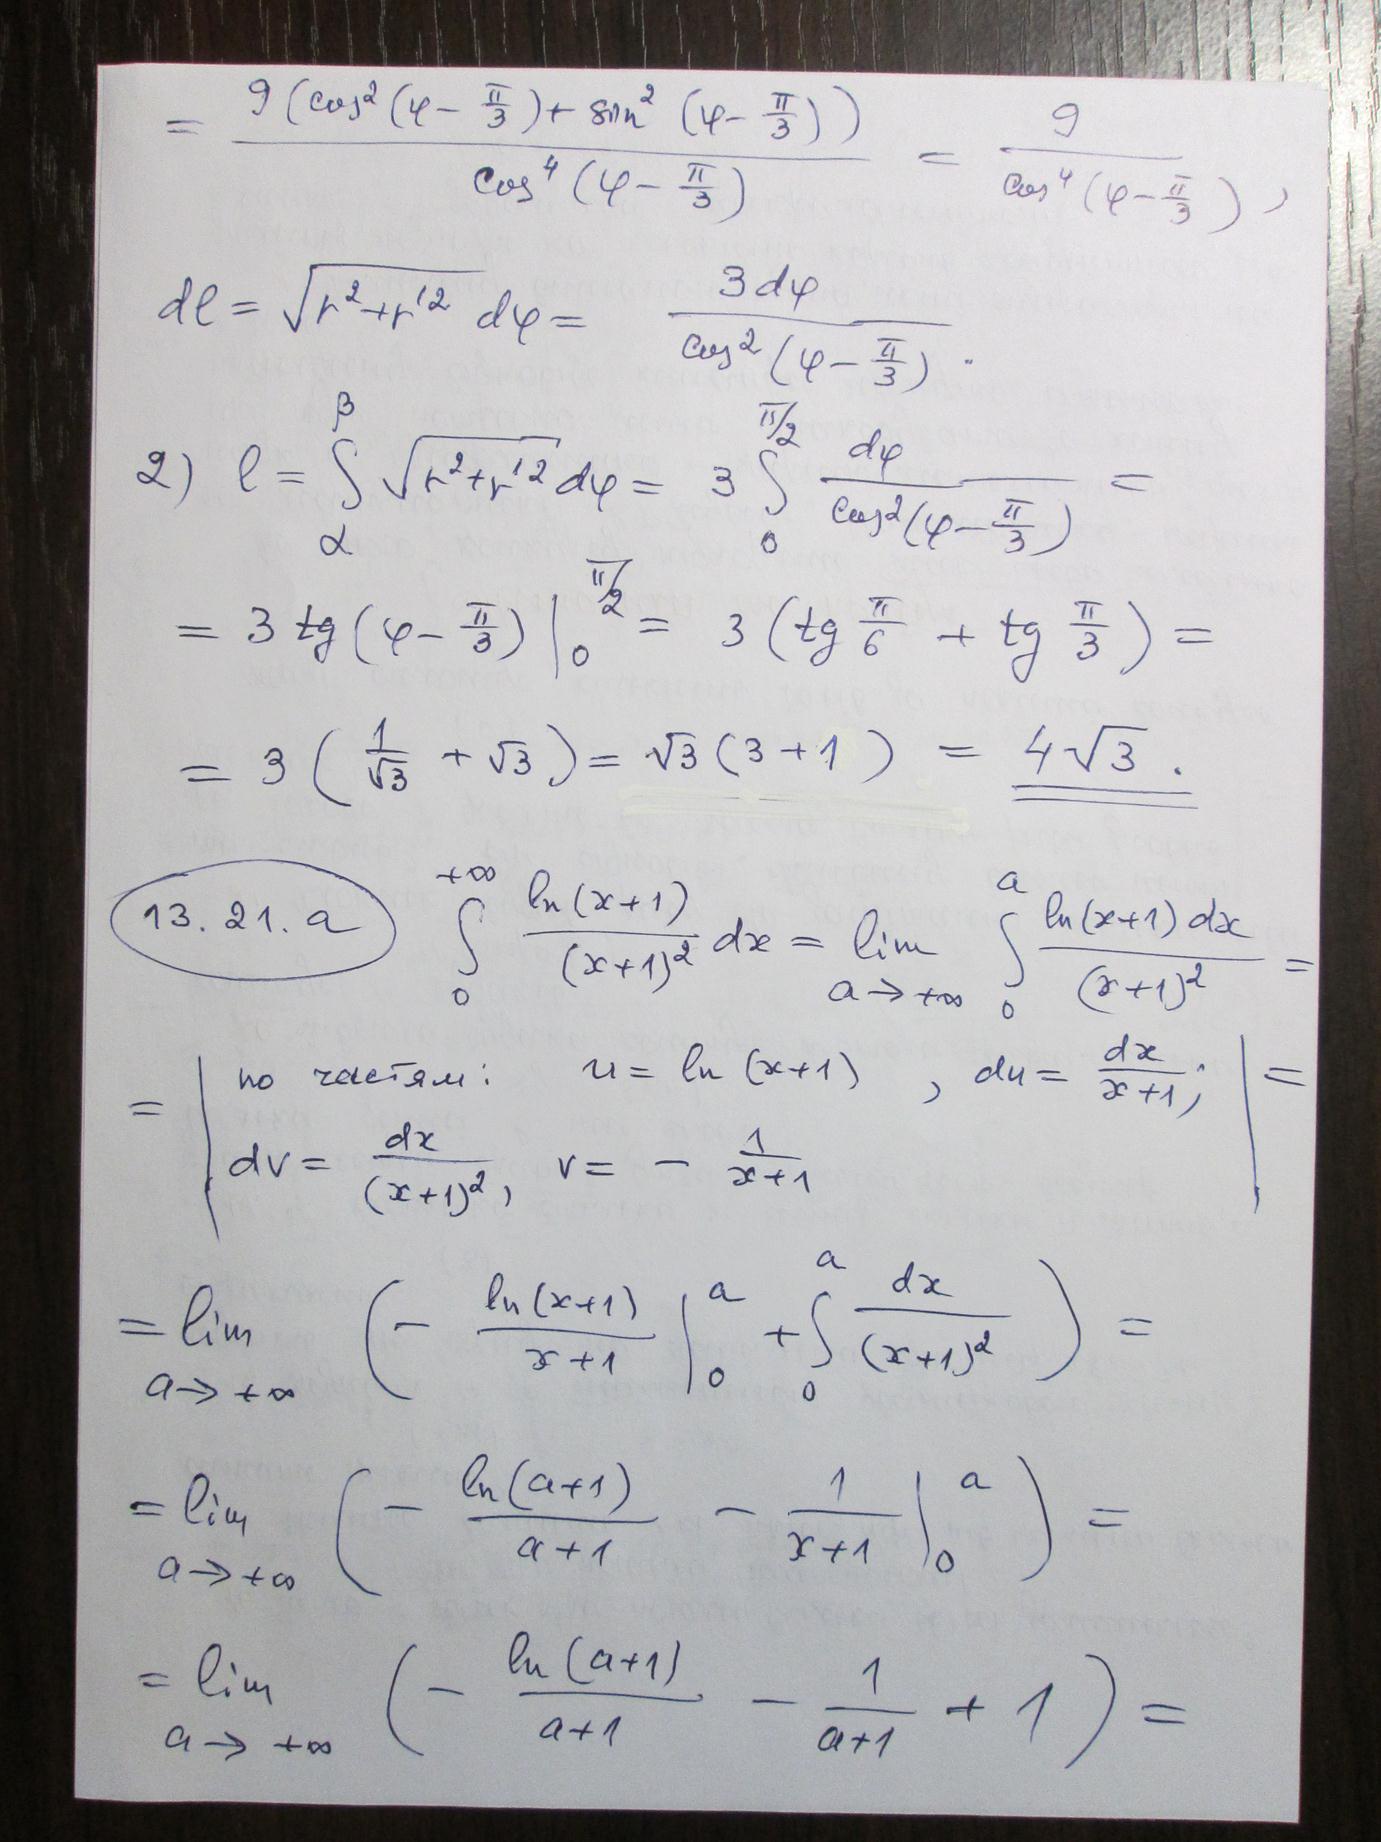 = 9(cos²(φ − π/3) + sin²(φ − π/3)) / cos⁴(φ − π/3) = 9 / cos⁴(φ − π/3),
dl = √(r² + r'²) dφ = 3dφ / cos²(φ − π/3).
2) l = ∫_α^β √(r² + r'²) dφ = 3 ∫_0^{π/2} dφ / cos²(φ − π/3) =
= 3 tg(φ − π/3) |_0^{π/2} = 3 (tg π/6 + tg π/3) =
= 3 (1/√3 + √3) = √3 (3 + 1) = 4√3.
13.21.a ∫_0^{+∞} ln(x+1)/(x+1)² dx = lim_{a→+∞} ∫_0^a ln(x+1)dx/(x+1)² =
= | по частям: u = ln(x+1), du = dx/(x+1); | =
dv = dx/(x+1)², v = − 1/(x+1)
= lim_{a→+∞} (− ln(x+1)/(x+1) |_0^a + ∫_0^a dx/(x+1)²) =
= lim_{a→+∞} (− ln(a+1)/(a+1) − 1/(x+1) |_0^a) =
= lim_{a→+∞} (− ln(a+1)/(a+1) − 1/(a+1) + 1) =